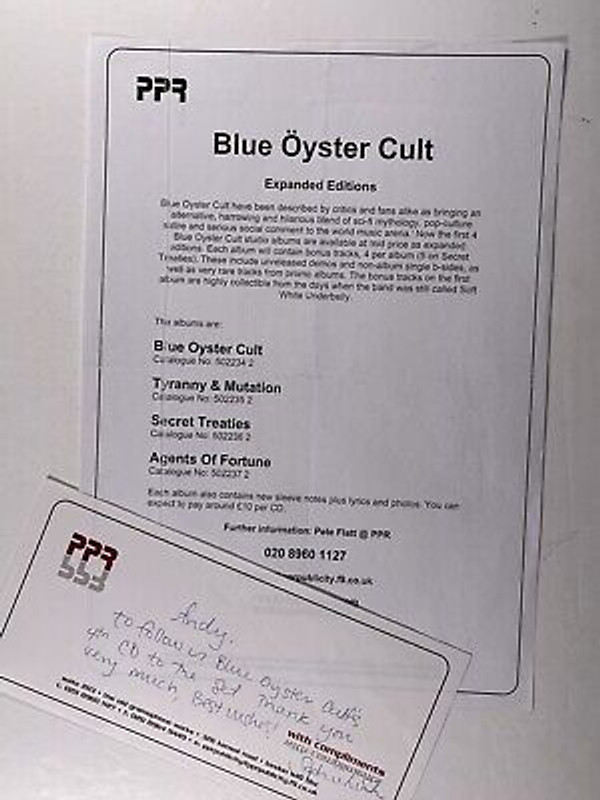 PPR
Blue Öyster Cult
Expanded Editions
Blue Oyster Cult have been described by critics and fans alike as bringing an
alternative, harrowing and hilarious blend of sci-fi mythology, pop-culture
satire and serious social comment to the world music arena. Now the first 4
Blue Oyster Cult studio albums are available at mid price as expanded
editions. Each album will contain bonus tracks, 4 per album (5 on Secret
Treaties). These include unreleased demos and non-album single b-sides, as
well as very rare tracks from promo albums. The bonus tracks on the first
album are highly collectible from the days when the band was still called Soft
White Underbelly.
The albums are:
Blue Oyster Cult
Catalogue No: 502234 2
Tyranny & Mutation
Catalogue No: 502235 2
Secret Treaties
Catalogue No: 502236 2
Agents Of Fortune
Catalogue No: 502237 2
Each album also contains new sleeve notes plus lyrics and photos. You can
expect to pay around £10 per CD.
Further information: Pete Flatt @ PPR
020 8960 1127
publicity.f9.co.uk
PPR
Andy,
to follow is Blue Oyster Cult's
4th CD to the set. Thank you
very much, Best wishes!
with compliments